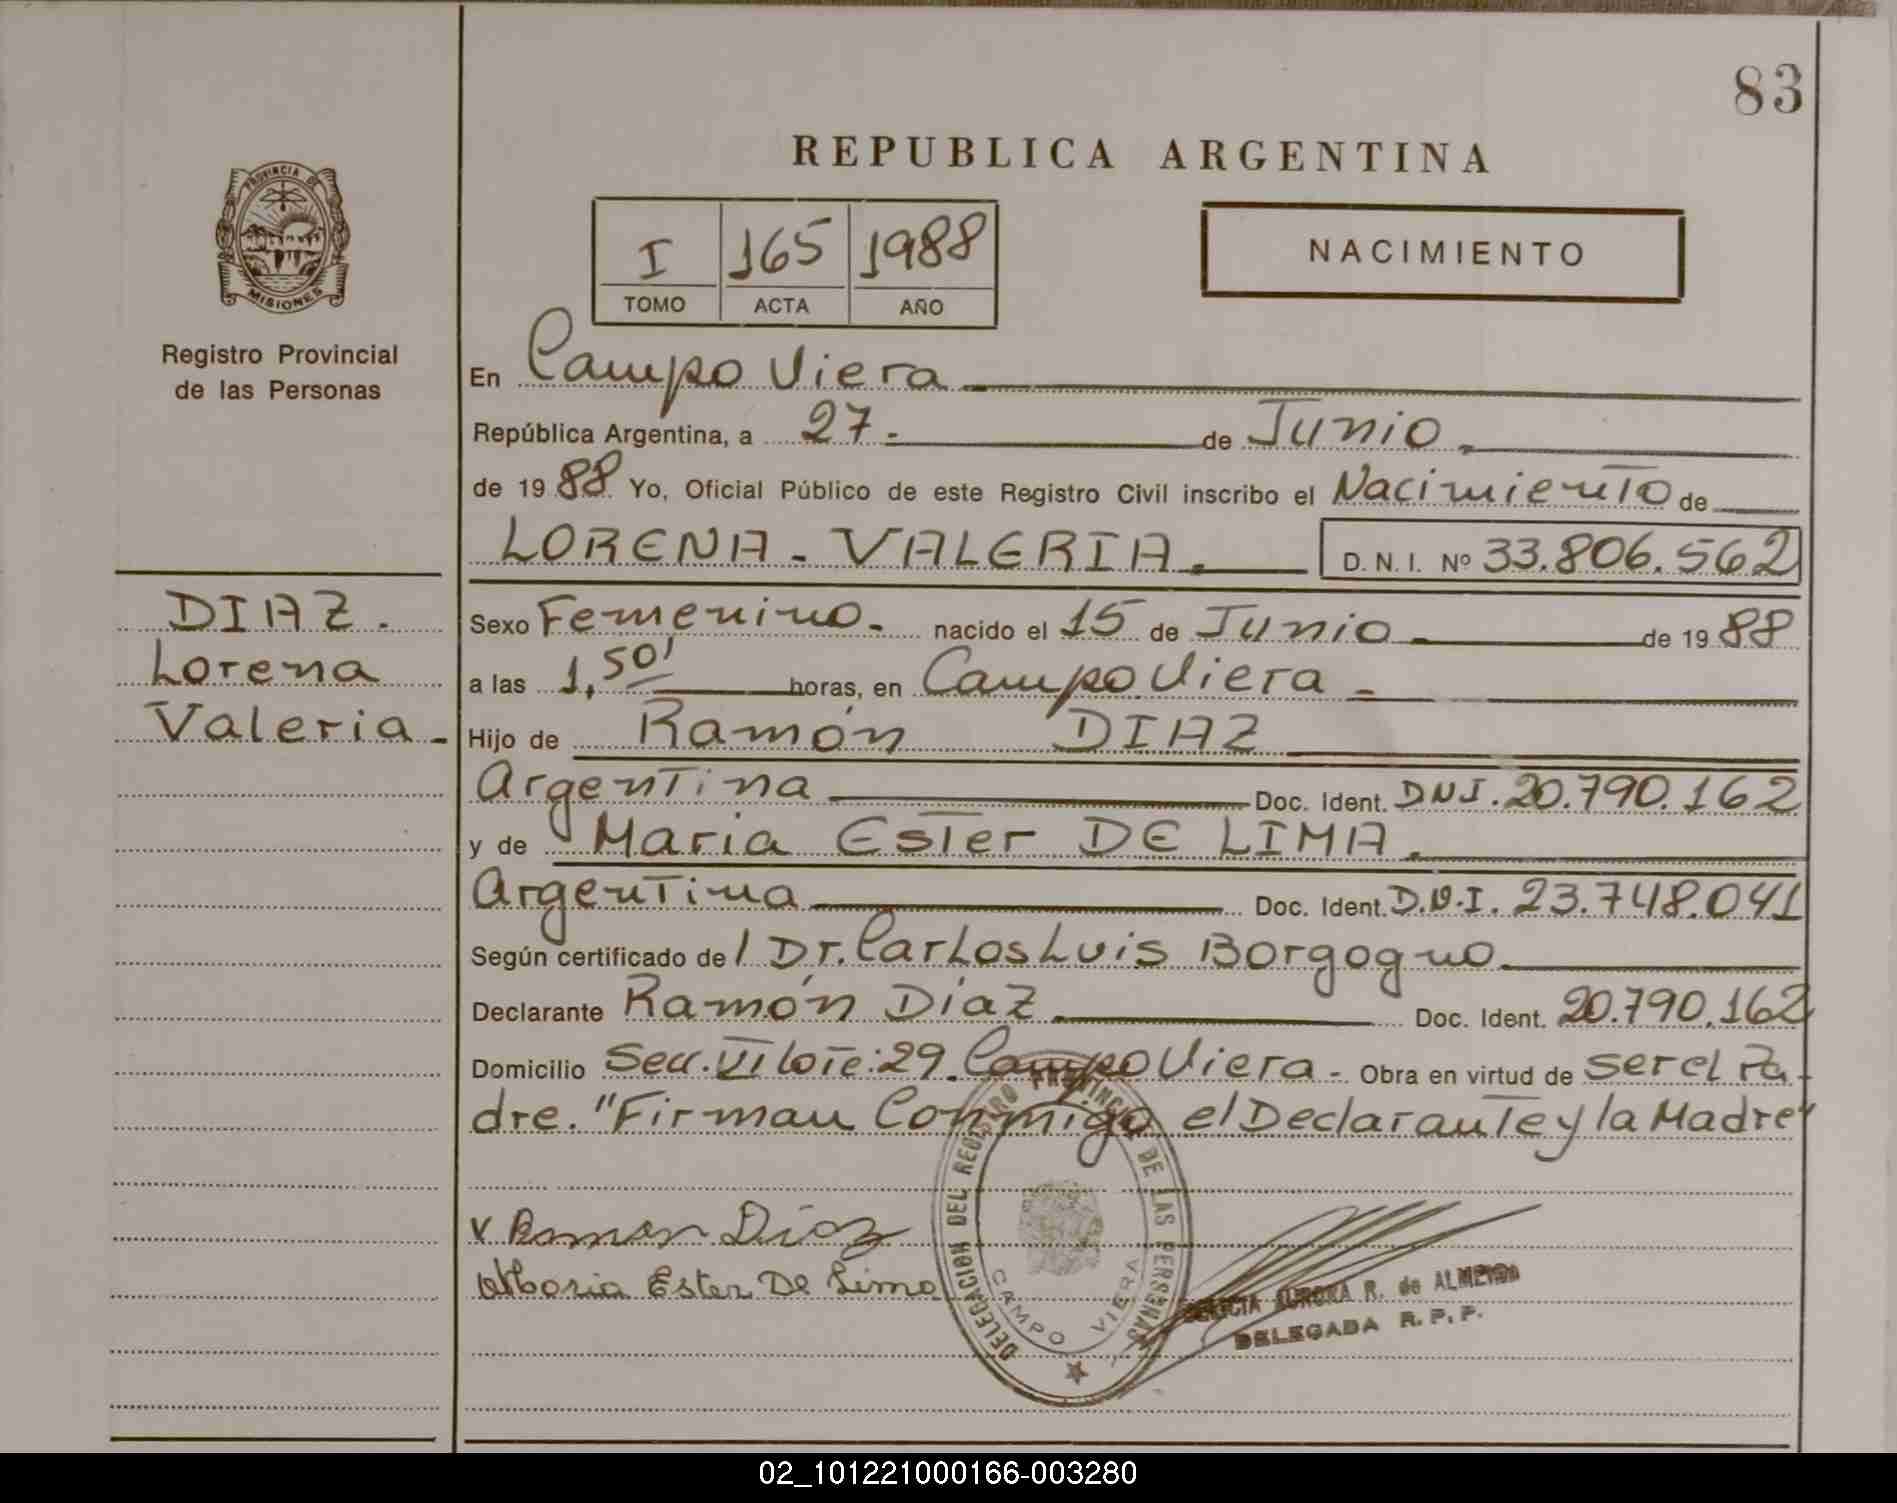 83
REPUBLICA ARGENTINA
PROVINCIA DE
MISIONES
Registro Provincial
de las Personas
I 165 1988
TOMO ACTA AÑO
NACIMIENTO
En Campo Viera
República Argentina, a 27.- de Junio.
de 1988 Yo, Oficial Público de este Registro Civil inscribo el Nacimiento de
LORENA - VALERIA. D. N. I. Nº 33.806.562
DIAZ.
Lorena
Valeria-
Sexo Femenino.- nacido el 15 de Junio de 1988
a las 1,50' horas, en Campo Viera-
Hijo de Ramón DIAZ
Argentina Doc. Ident. DNI. 20.790.162
y de Maria Ester DE LIMA.
Argentina Doc. Ident. D.N.I. 23.748.041
Según certificado de l Dr. Carlos Luis Borgogno
Declarante Ramón Díaz Doc. Ident. 20.790.162
Domicilio Secc. VI lote: 29. Campo Viera.- Obra en virtud de ser el Pa-
dre. "Firman Conmigo el Declarante y la Madre"
v Ramon Díaz
Maria Ester De Lima
DELEGACION DEL REGISTRO PROVINCIAL DE LAS PERSONAS
CAMPO VIERA
AURORA R. de ALMEIDA
DELEGADA R. P. P.
02_101221000166-003280